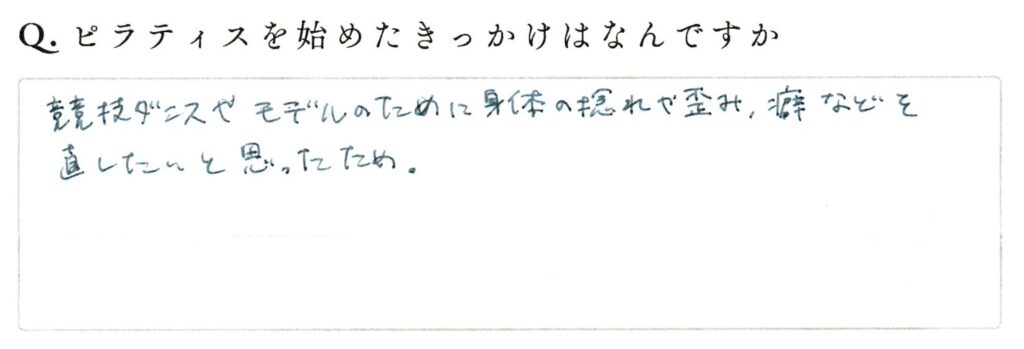 Q. ピラティスを始めたきっかけはなんですか
競技ダンスやモデルのために身体の捻れや歪み, 癖などを
直したいと思ったため。